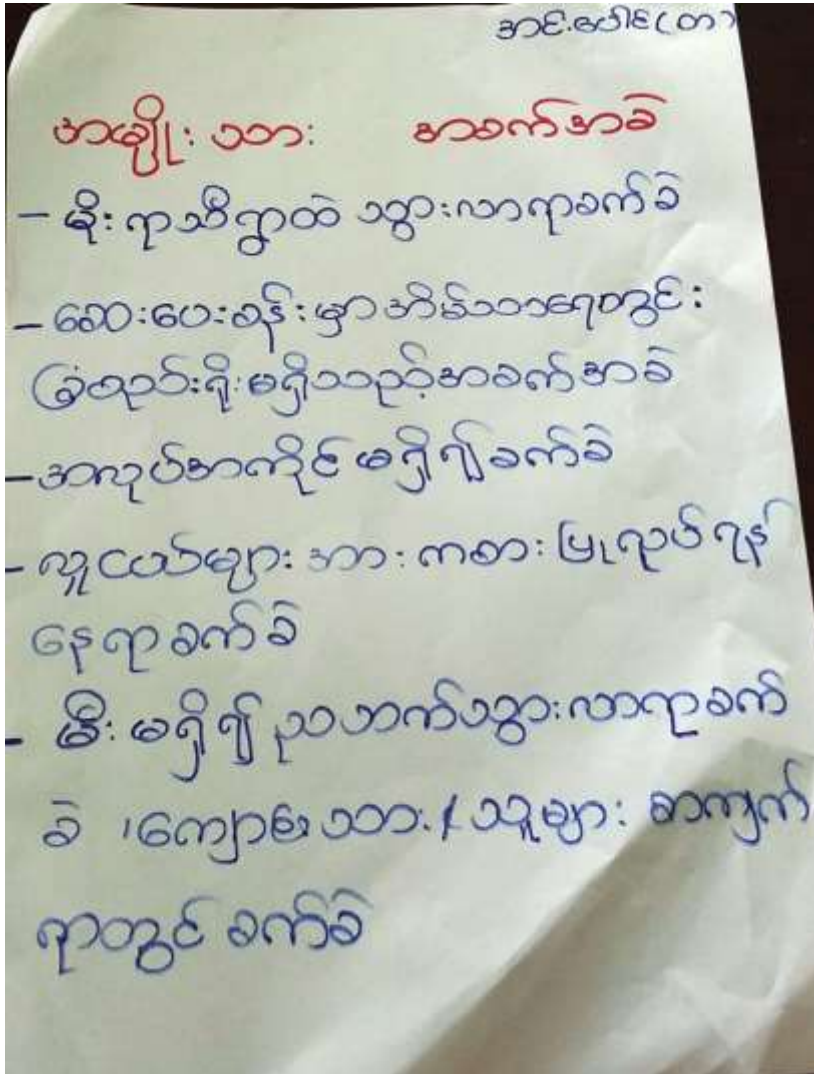 အင်းပေါင်(တာ)
အမျိုးသား အခက်အခဲ
- မိုးရာသီရွာထဲ သွားလာရာခက်ခဲ
- ဆေးပေးခန်းမှာအိမ်သာရေတွင်း
ခြံစည်းရိုးမရှိသည့်အခက်အခဲ
- အလုပ်အကိုင်မရှိ၍ခက်ခဲ
- လူငယ်များအားကစားပြုလုပ်ရန်
နေရာခက်ခဲ
- မီးမရှိ၍ညဘက်သွားလာရာခက်
ခဲ ၊ကျောင်းသား/သူများ စာကျက်
ရာတွင် ခက်ခဲ